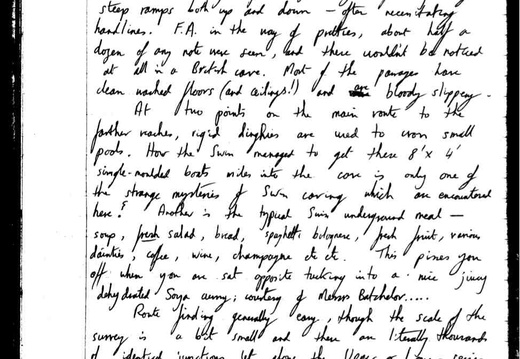 steep ramps both up and down – often necessitating
handlines. F.A. in the way of pretties, about half a
dozen of any note were seen, and these wouldn't be noticed
at all in a British cave. Most of the passages have
clean washed floors (and ceilings!) and are bloody slippery.
At two points on the main route to the
farther reaches, rigid dinghies are used to cross small
pools. How the Swiss managed to get these 8' x 4'
single-moulded boats miles into the cave is only one of
the strange mysteries of Swiss caving which are encountered
here! Another is the typical Swiss underground meal —
soup, fresh salad, bread, spaghetti bolognese, fresh fruit, various
dainties, coffee, wine, champagne etc etc. This pisses you
off when you are sat opposite tucking into a nice juicy
dehydrated Soya curry; courtesy of Messrs Batchelor.....
Route finding generally easy, though the scale of the
survey is a bit small and there are literally thousands
of identical junctions let alone the